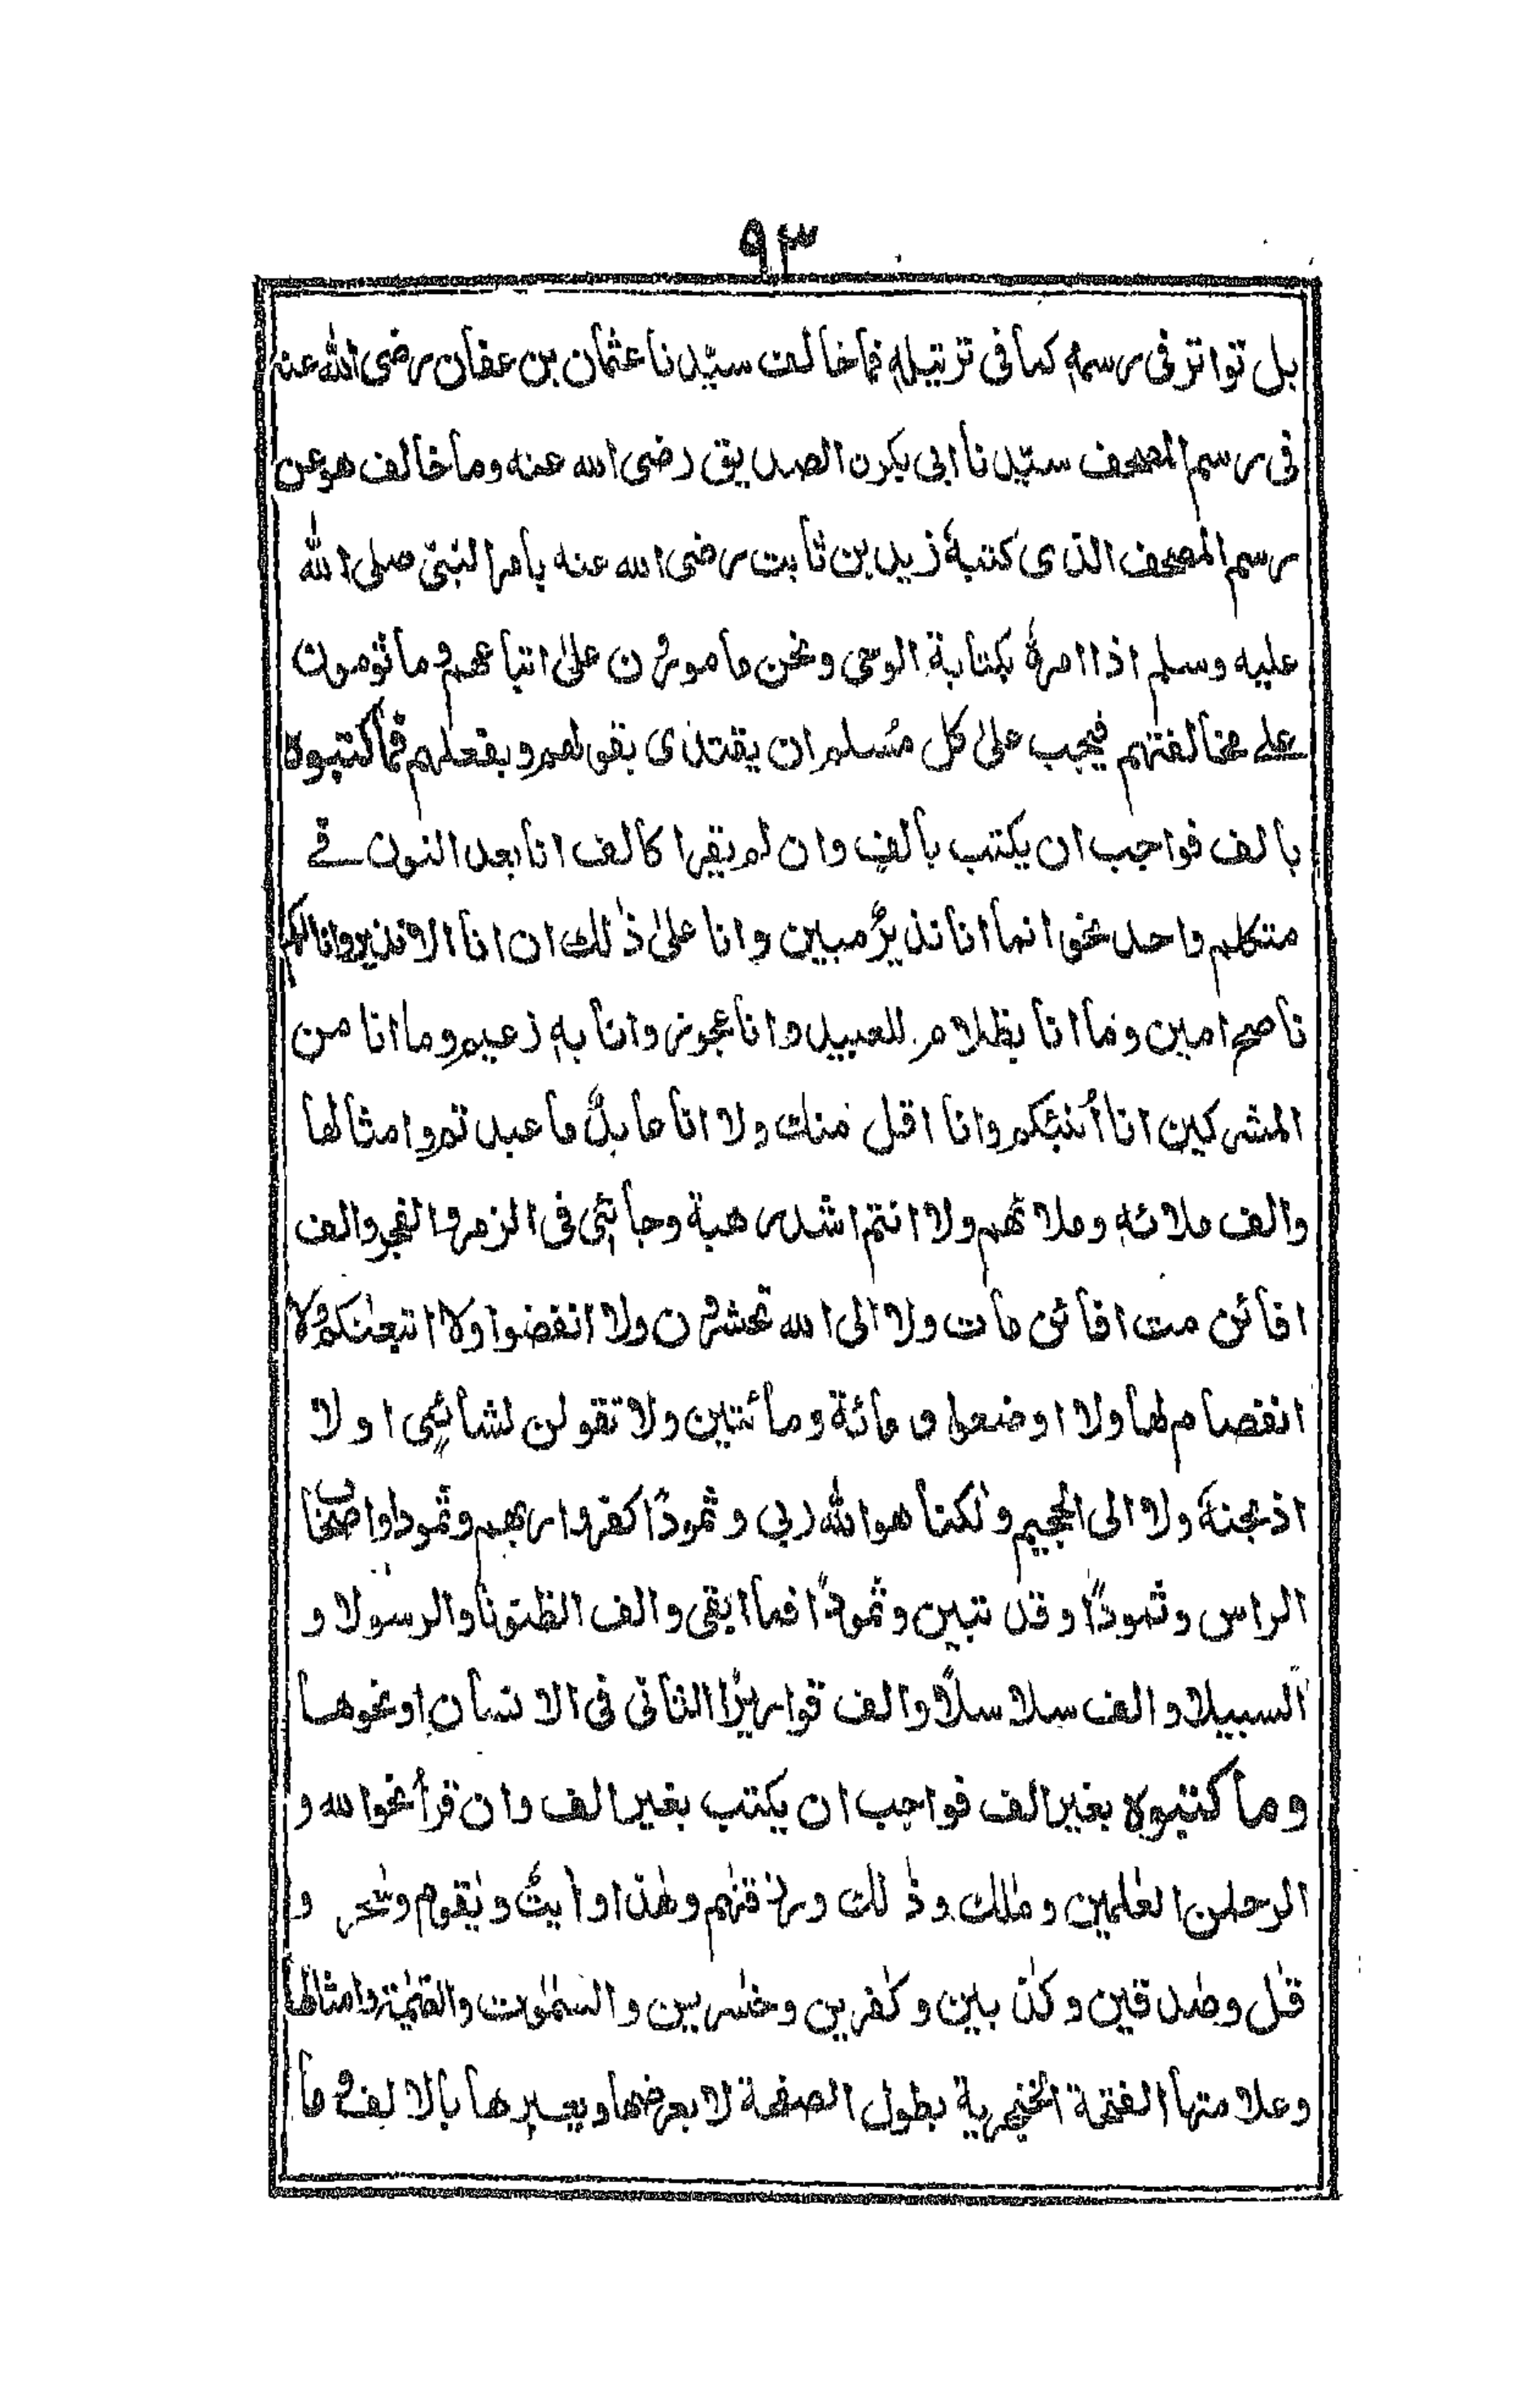 ٩٣
بل تواتر فى رسمهٖ كما فى ترتيلهٖ فما خالف سيّدنا عثمان بن عفان رضى الله عنه
فى رسم المصحف سيّدنا ابى بكرن الصديق رضى الله عنه وما خالف هو عن
رسم المصحف الذى كتبهٗ زيد بن ثابت رضى الله عنه بامر النبىّ صلى الله
عليه وسلم اذا امرهٗ بكتابة الوحى ونحن مامورون علىٰ اتباعهم وما نؤمرون
على مخالفتهم فيجب علىٰ كل مُسلم ان يقتدى بقولهم وبفعلهم فما كتبوه
بالف فواجب ان يكتب بالفٍ وان لم يقرا كالف انا بعد النون فى
متكلم واحد نحو انما انا نذيرٌ مبين وانا علىٰ ذٰلك ان انا الا نذير وانا لكم
ناصح امين وما انا بظلام للعبيد وانا عجوز وانا بهٖ زعيم وما انا من
المشركين انا اُنبئكم وانا اقل منك ولا انا عابدٌ ما عبدتم وامثالها
والف ملائهٖ وملائهم ولا انتم اشد رهبة وجائئ فى الزمر والفجر والف
افائن مت افائن مات ولا الى الله تحشرون ولا انفضوا ولا اتبعنٰكم ولا
انفصام لها ولا اوضعوا و مائة ومائتين ولا تقولن لشائ اولا
اذبحنهٗ ولا الى الجحيم ولٰكنا هو الله ربي وثمودًا كفروا ربهم وثمودا واصحٰب
الراس وثمودًا وقد تبين وثمودًا فما ابقى والف الظنونا والرسولا و
السبيلا والف سلاسلًا والف قواريرًا الثانى فى الانسان ونحوها
وما كتبوه بغير الف فواجب ان يكتب بغير الف وان قرأ نحو الله و
الرحمٰن العٰلمين ومٰلك وذٰلك ورزقنٰهم وهٰذا و اٰيٰتٌ ويٰقوم وسٰحر و
قٰل وصٰدقين وكٰذبين وكٰفرين وخٰسرين والسمٰوٰت والقيٰمة وامثالها
وعلامتها الفتحة الخنجرية بطول الصفحة لا بعرضها ويعبرها بالالف وما